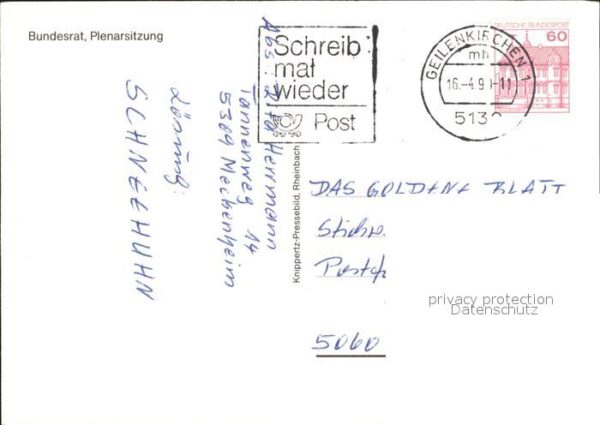 Bundesrat, Plenarsitzung
Schreib
mal
wieder
Post
GEILENKIRCHEN 1
mh
16.-4.9 -11
513
DEUTSCHE BUNDESPOST
60
Abs: Rita Herrmann
Tannenweg 14
5309 Meckenheim
Lösung:
SCHNEEHUHN
Knippertz-Pressebild, Rheinbach
DAS GOLDENE BLATT
Stichw.
Postf
5060
privacy protection
Datenschutz